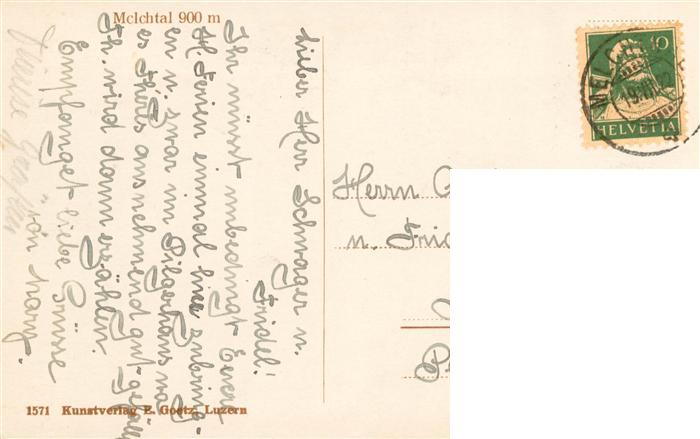 Melchtal 900 m
Lieber Herr Schwager u.
Fridel!
Ihr müsst unbedingt Eure
H. Ferien einmal hier zubring-
en u. zwar im Pilgerhaus wo
es Thuls ausnehmend gut gefällt
Th. wird dann erzählen.
Empfanget liebe Grüsse
von Marg.
Herrn
u. Frid
10
HELVETIA
1571 Kunstverlag E. Goetz, Luzern